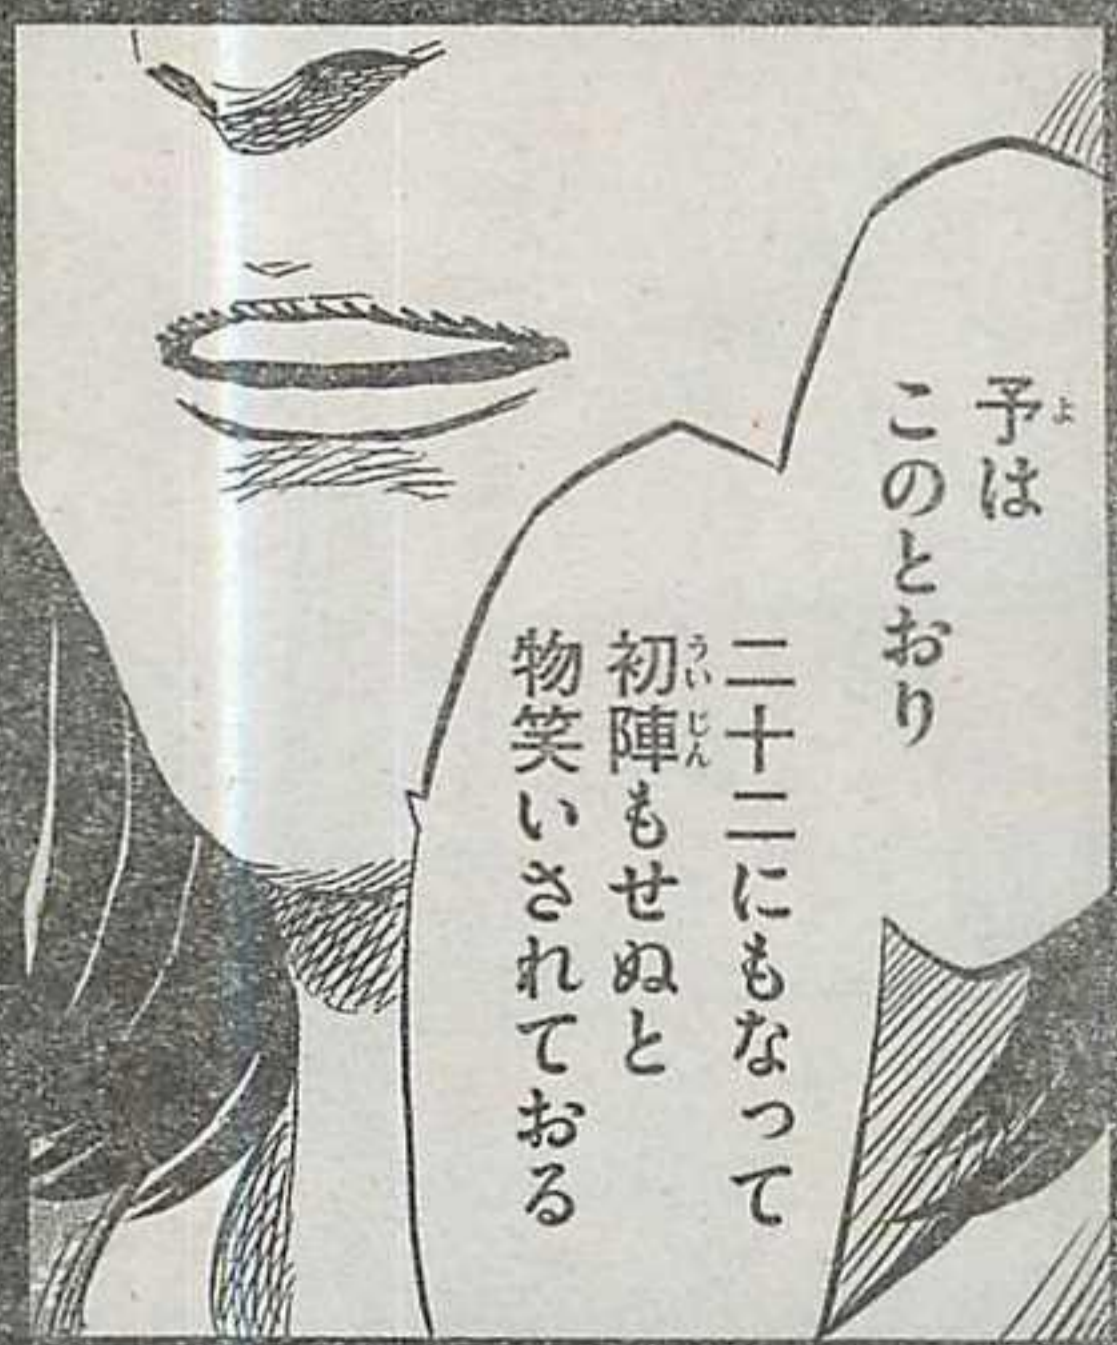 予は
このとおり
二十二にもなって
初陣もせぬと
物笑いされておる